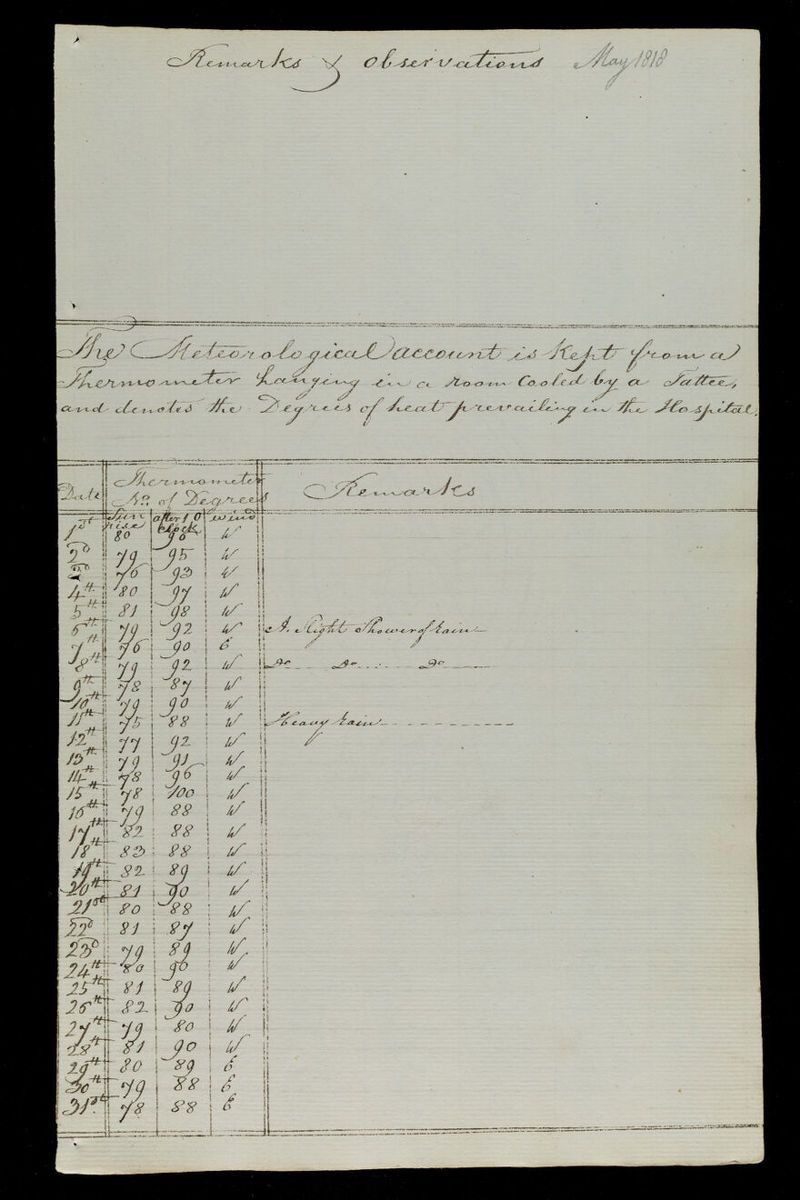 Remarks & Observations May 1818
The Meteorological account is Kept from a
Thermometer hanging in a room Cooled by a Tattee,
and denotes the Degrees of heat prevailing in the Hospital.
Date Thermometer No. of Degrees Remarks
Sun rise after 10 Clock wind
1st 80 90 W
2d 79 95 W
3d 76 93 W
4th 80 97 W
5th 81 98 W
6th 79 92 W A. Slight Shower of rain
7th 76 90 E
8th 79 92 W Do Do Do
9th 78 87 W
10th 79 90 W
11th 75 88 W Heavy rain
12th 77 92 W
13th 79 91 W
14th 78 96 W
15th 78 100 W
16th 79 88 W
17th 82 88 W
18th 83 88 W
19th 82 89 W
20th 81 90 W
21st 80 88 W
22d 81 87 W
23d 79 89 W
24th 80 90 W
25th 81 89 W
26th 82 90 W
27th 79 80 W
28th 81 90 W
29th 80 89 E
30th 79 88 E
31st. 78 88 E